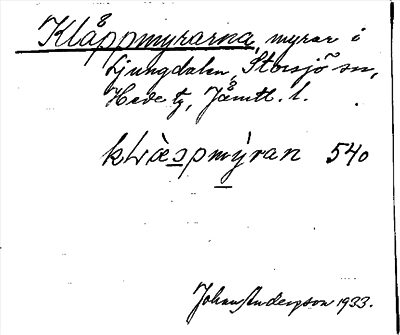 Klåppmyrarna, myrar i
Ljungdalen, Storsjö sn,
Hede tg, Jämtl. l.
540
Johan Anderson 1933.